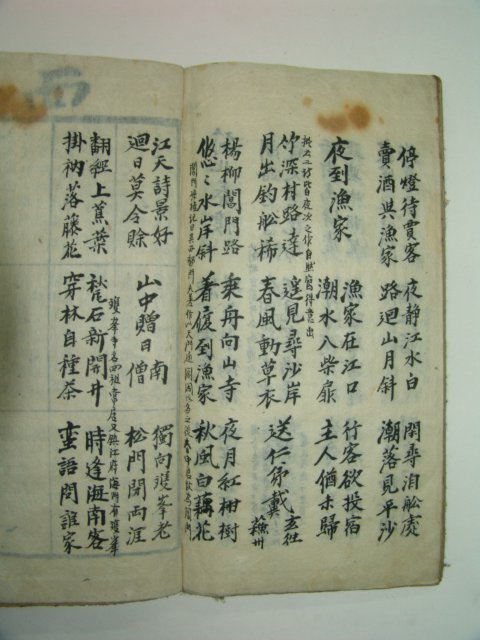 停燈待賈客 夜靜江水白 閑尋泊舩處
賣酒與漁家 路迴山月斜 潮落見平沙
夜到漁家
漁家在江口 行客欲投宿
潮水入柴扉 主人猶未歸
竹深村路遠 遙見尋沙岸
月出釣舩稀 春風動草衣
送從弟戴玄往蘇州
楊柳閶門路 乘舟向山寺 夜月紅柑樹
悠〻水岸斜 着屐到漁家 秋風白藕花
江天詩景好
迴日莫令賖
山中贈日南僧
獨向雙峯老
松門閉兩涯
雙峯寺名四祖常居又鎮江府海門有雙峯
翻經上蕉葉 甃石新開井 時逢海南客
掛衲落藤花 穿林自種茶 蠻語問誰家